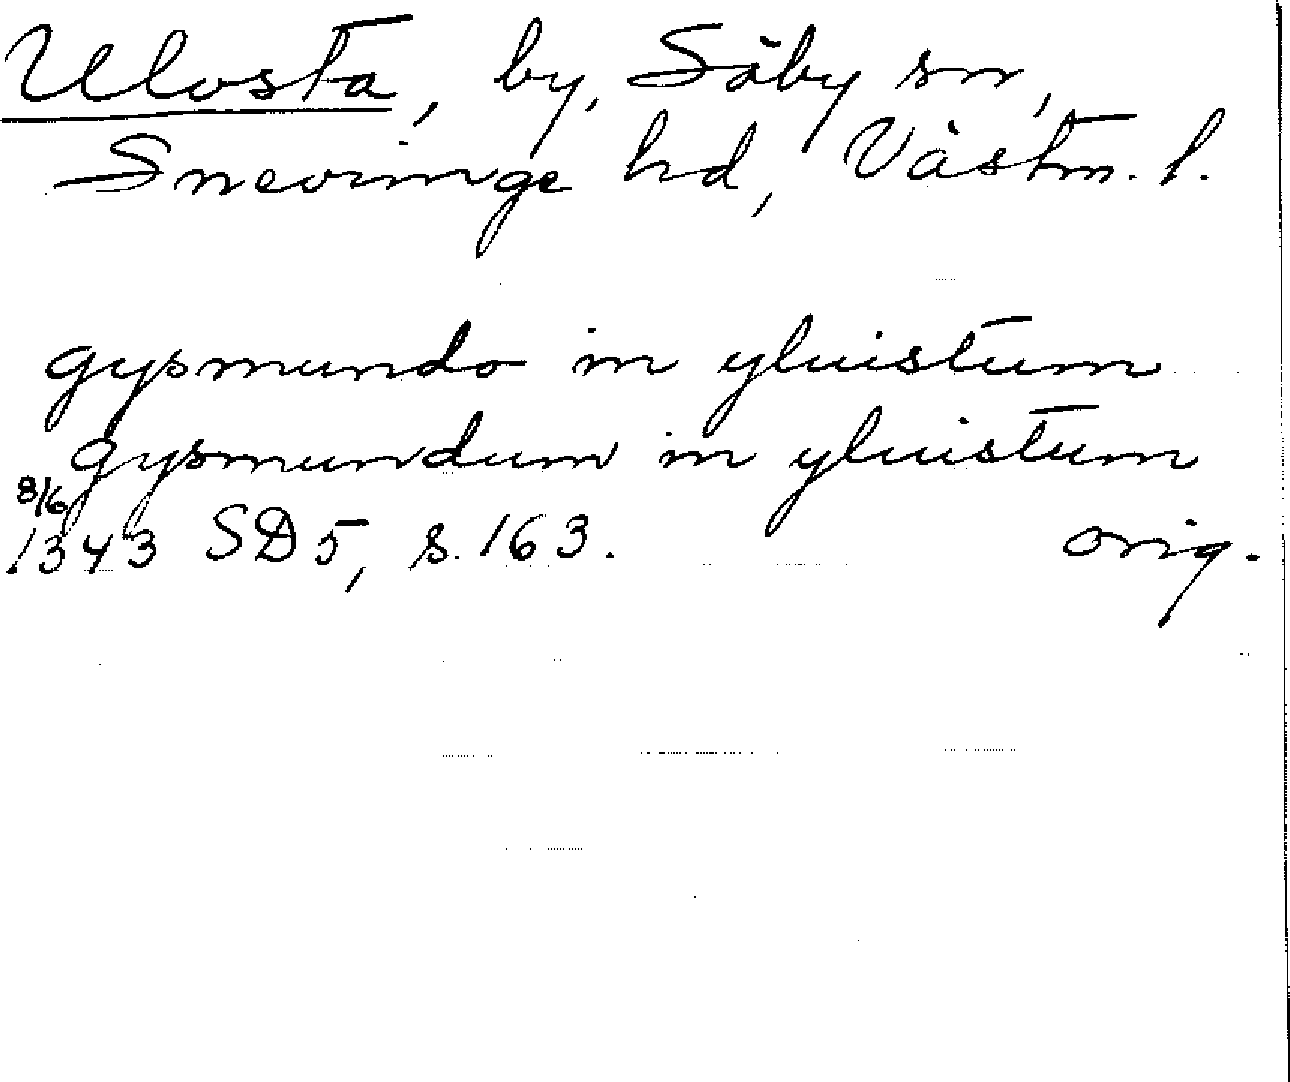 Ulvsta, by, Säby sn,
Snevringe hd, Västm. l.
gysmundo in yluistum
gysmundum in yluistum
8/6
1343 SD5, s. 163. orig.